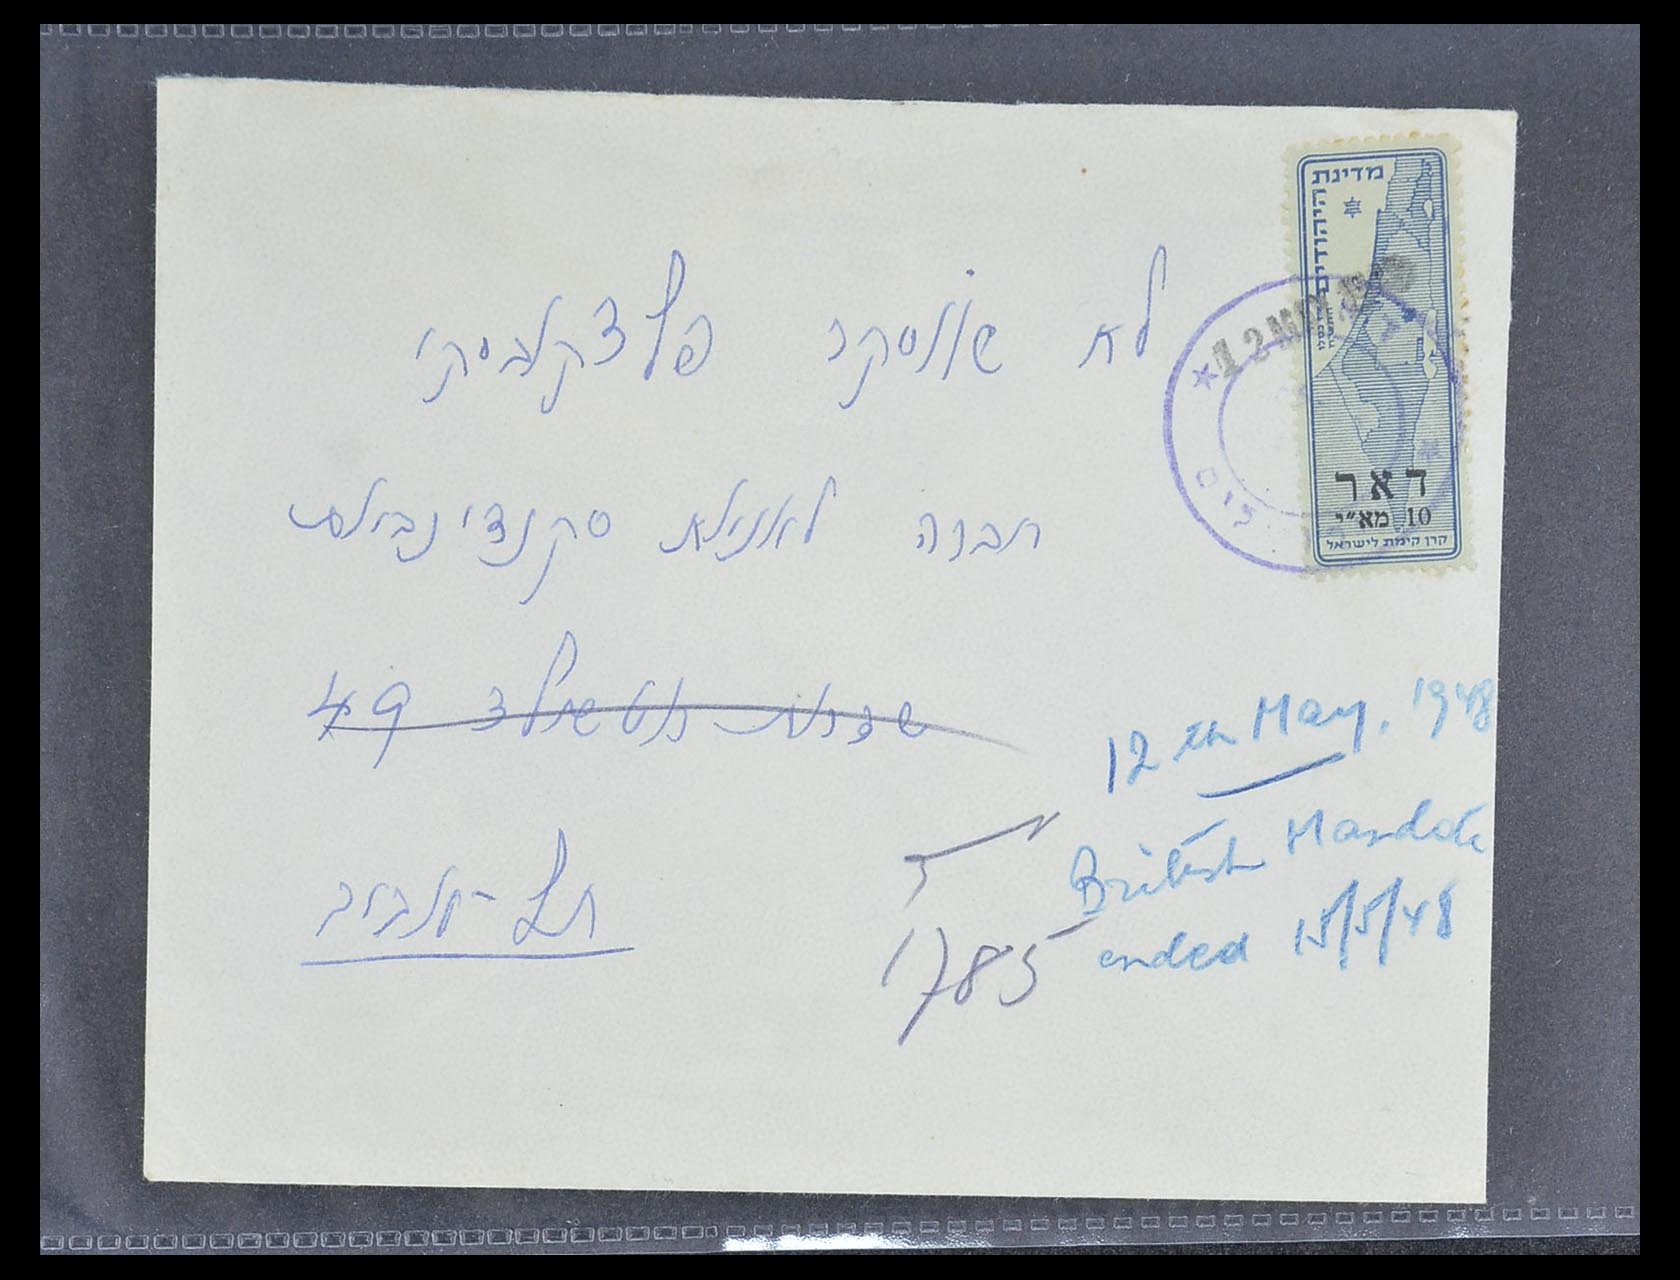 מדינת
היהודים
12 MAY
דאר
10 מא״י
קרן קימת לישראל
חברה לאניות סקנדינביות
שדרות רוטשילד 49
תל-אביב
12th May. 1948
British Mandate
ended 15/5/48
1785